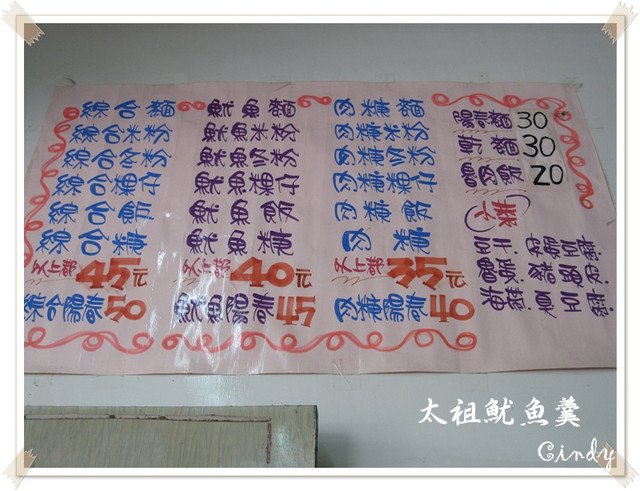 綜合麵
綜合米粉
綜合冬粉
綜合粿仔
綜合飯
綜合焿
以上都45元
綜合陽春50
魷魚麵
魷魚米粉
魷魚冬粉
魷魚粿仔
魷魚飯
魷魚焿
以上都40元
魷魚陽春45
肉焿麵
肉焿米粉
肉焿冬粉
肉焿粿仔
肉焿飯
肉焿
以上都35元
肉焿陽春40
陽春麵30
乾麵30
肉飯20
太祖魷魚羹
Cindy